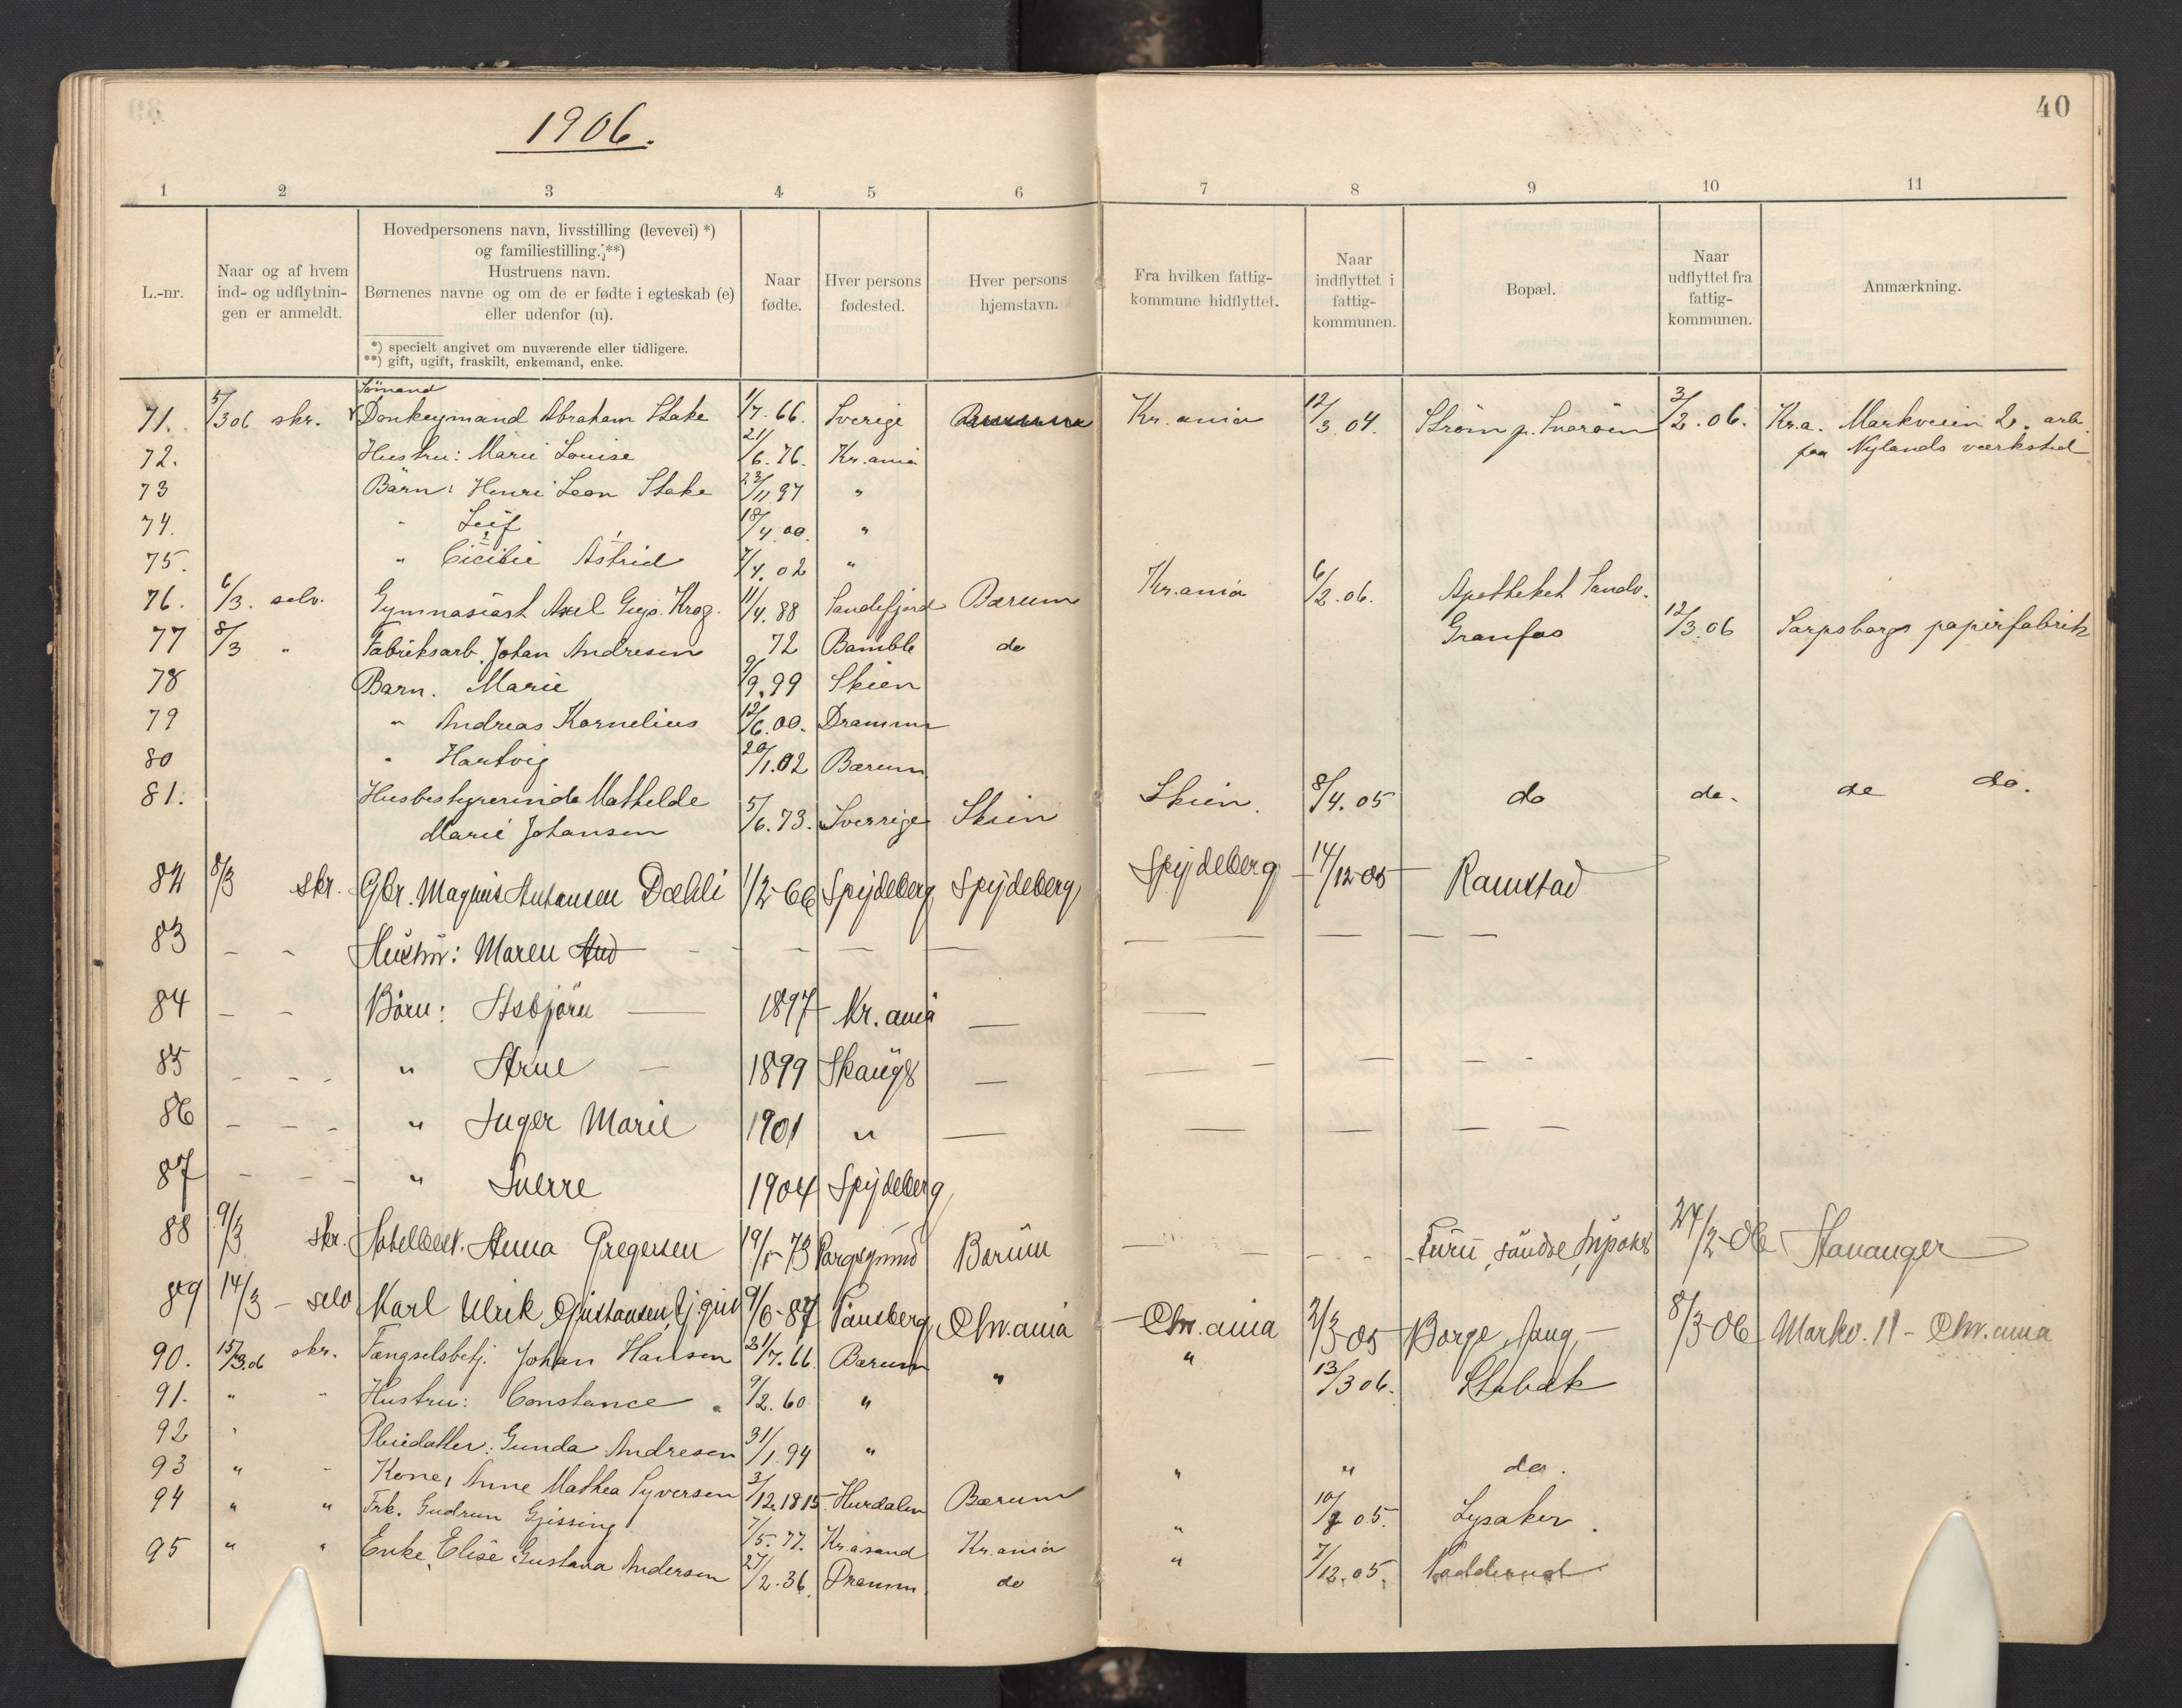 40
1906.
1 2 3 4 5 6 7 8 9 10 11
L.-nr.
Naar og af hvem
ind- og udflytnin-
gen er anmeldt.
Hovedpersonens navn, livsstilling (levevei) *)
og familiestilling. **)
Hustruens navn.
Børnenes navne og om de er fødte i egteskab (e)
eller udenfor (u).
*) specielt angivet om nuværende eller tidligere.
**) gift, ugift, fraskilt, enkemand, enke.
Naar
fødte.
Hver persons
fødested.
Hver persons
hjemstavn.
Fra hvilken fattig-
kommune hidflyttet.
Naar
indflyttet i
fattig-
kommunen.
Bopæl.
Naar
udflyttet fra
fattig-
kommunen.
Anmærkning.
Sømand
71. 5/3 06 skr. Donkeymand Abraham Stake 1/7.66. Sverige Kr.ania 12/3.04. Strøm p. Snarøen 3/2.06. Kr.a. Markveien 2. arb.
paa Nylands værksted
72. Hustru: Marie Louise 21/6.76. Kr.ania
73 Børn: Henri Leon Stake 23/11 97 "
74. " Leif 18/4.00. "
75. " Cicilie Astrid 7/4.02 "
76. 6/3. selv. Gymnasiast Axel Krog. 11/4.88 Sandefjord Bærum Kr.ania 6/2.06. Apotheket Sandv.
77 8/3 " Fabriksarb. Johan Andresen 72 Bamble do Granfos 12/3.06 Sarpsborgs papirfabrik
78 Barn. Marie 9/9.99 Skien
79 " Andreas Kornelius 12/6.00. Dramm
80 " Hartvig 20/1.02 Bærum
81. Husbestyrerinde Mathilde
Marie Johansen 5/6.73. Sverrige Skien Skien. 8/4.05 do do. do do.
82 8/3 skr. Gbr. Magnus Antonsen Dæhli 1/2-66 Spydeberg Spydeberg Spydeberg 14/12-05 Ramstad
83 - - Hustru: Maren - - - - - - - - -
84 - - Børn: Asbjørn - 1897 Kr.ania - -
85 - - - " Arne - 1899 Skaugs - - - - - -
86 - - - " Inger Marie 1901 " - - - - -
87 - - - " Sverre 1904 Spydeberg
88 9/3 skr. Hotelbest. Anna Gregersen 19/5-73 Borgsgrund Bærum - - - - - 24/2-06 Stavanger
89 14/3 - selv Karl Ulrik 9/6-87 Tønsberg Chr.ania - Chr.ania 2/3-05 Borge, Haug, - 8/3-06 Markv. 11 - Chr.ania
90. 15/3.06 skr. Fængselsbetj. Johan Hansen 21/7.66. Bærum " " 13/3 06. Stabæk
91. " " Hustru: Constance 9/2.60 "
92 " Pleiedatter: Gunda Andresen 31/1.94 "
93 " " Kone, Anne Mathea Syversen 3/12.1815 Hurdalen Bærum " " do.
94 " " Frk. Gudrun Gjissing 7/5.77. Kr.asand Kr.ania " 10/8 05. Lysaker.
95 " " Enke, Elise Gustava Andersen 27/2.36. Dramm. do " 7/12.05. Nadderud